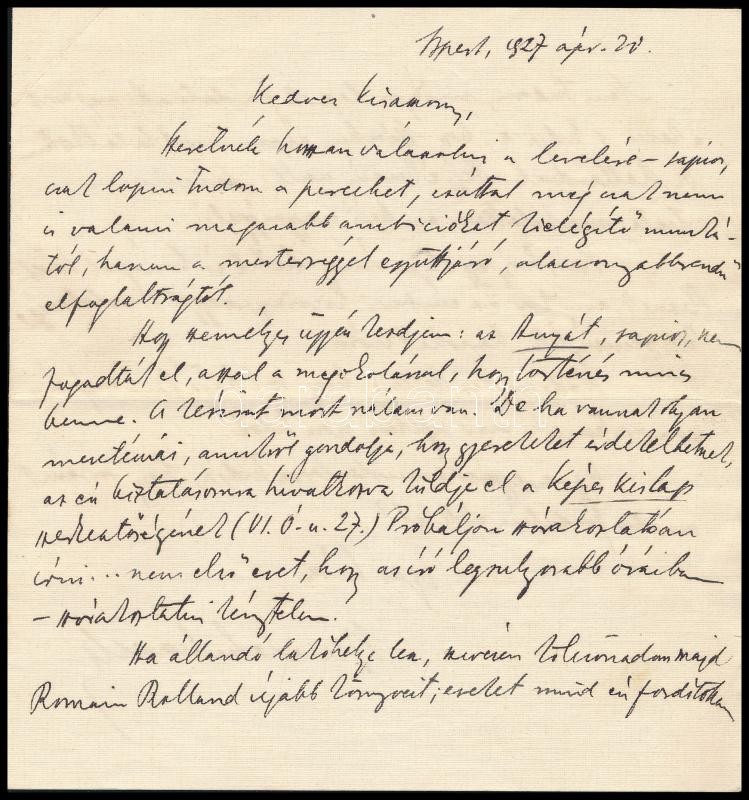 Bpest, 1927 ápr. 20.
Kedves Kisasszony,
Szeretnék hosszan válaszolni a levelére – sajnos,
csak lopni tudom a perceket, ezúttal még csak nem
is valami magasabb ambiciókat kielégítő munká-
tól, hanem a mesterséggel együttjáró, alacsonyabbrendű
elfoglaltságtól.
Hogy személyes ügyén kezdjem: az Anyát, sajnos, nem
fogadták el, azzal a megokolással, hogy történés nincs
benne. A kézirat most nálam van. De ha vannak olyan
mesetémái, amikről gondolja, hogy gyerekeket érdekelhetnek,
az én biztatásomra hivatkozva küldje el a Képes Kislap
szerkesztőségének (VI. Ó-u. 27.) Próbáljon szórakoztatóan
írni... nem első eset, hogy az író legsulyosabb óráiban
– szórakoztatni kénytelen.
Ha állandó lakóhelye lesz, szívesen kölcsönadom majd
Romain Rolland újabb könyveit; ezeket mind én fordítottam